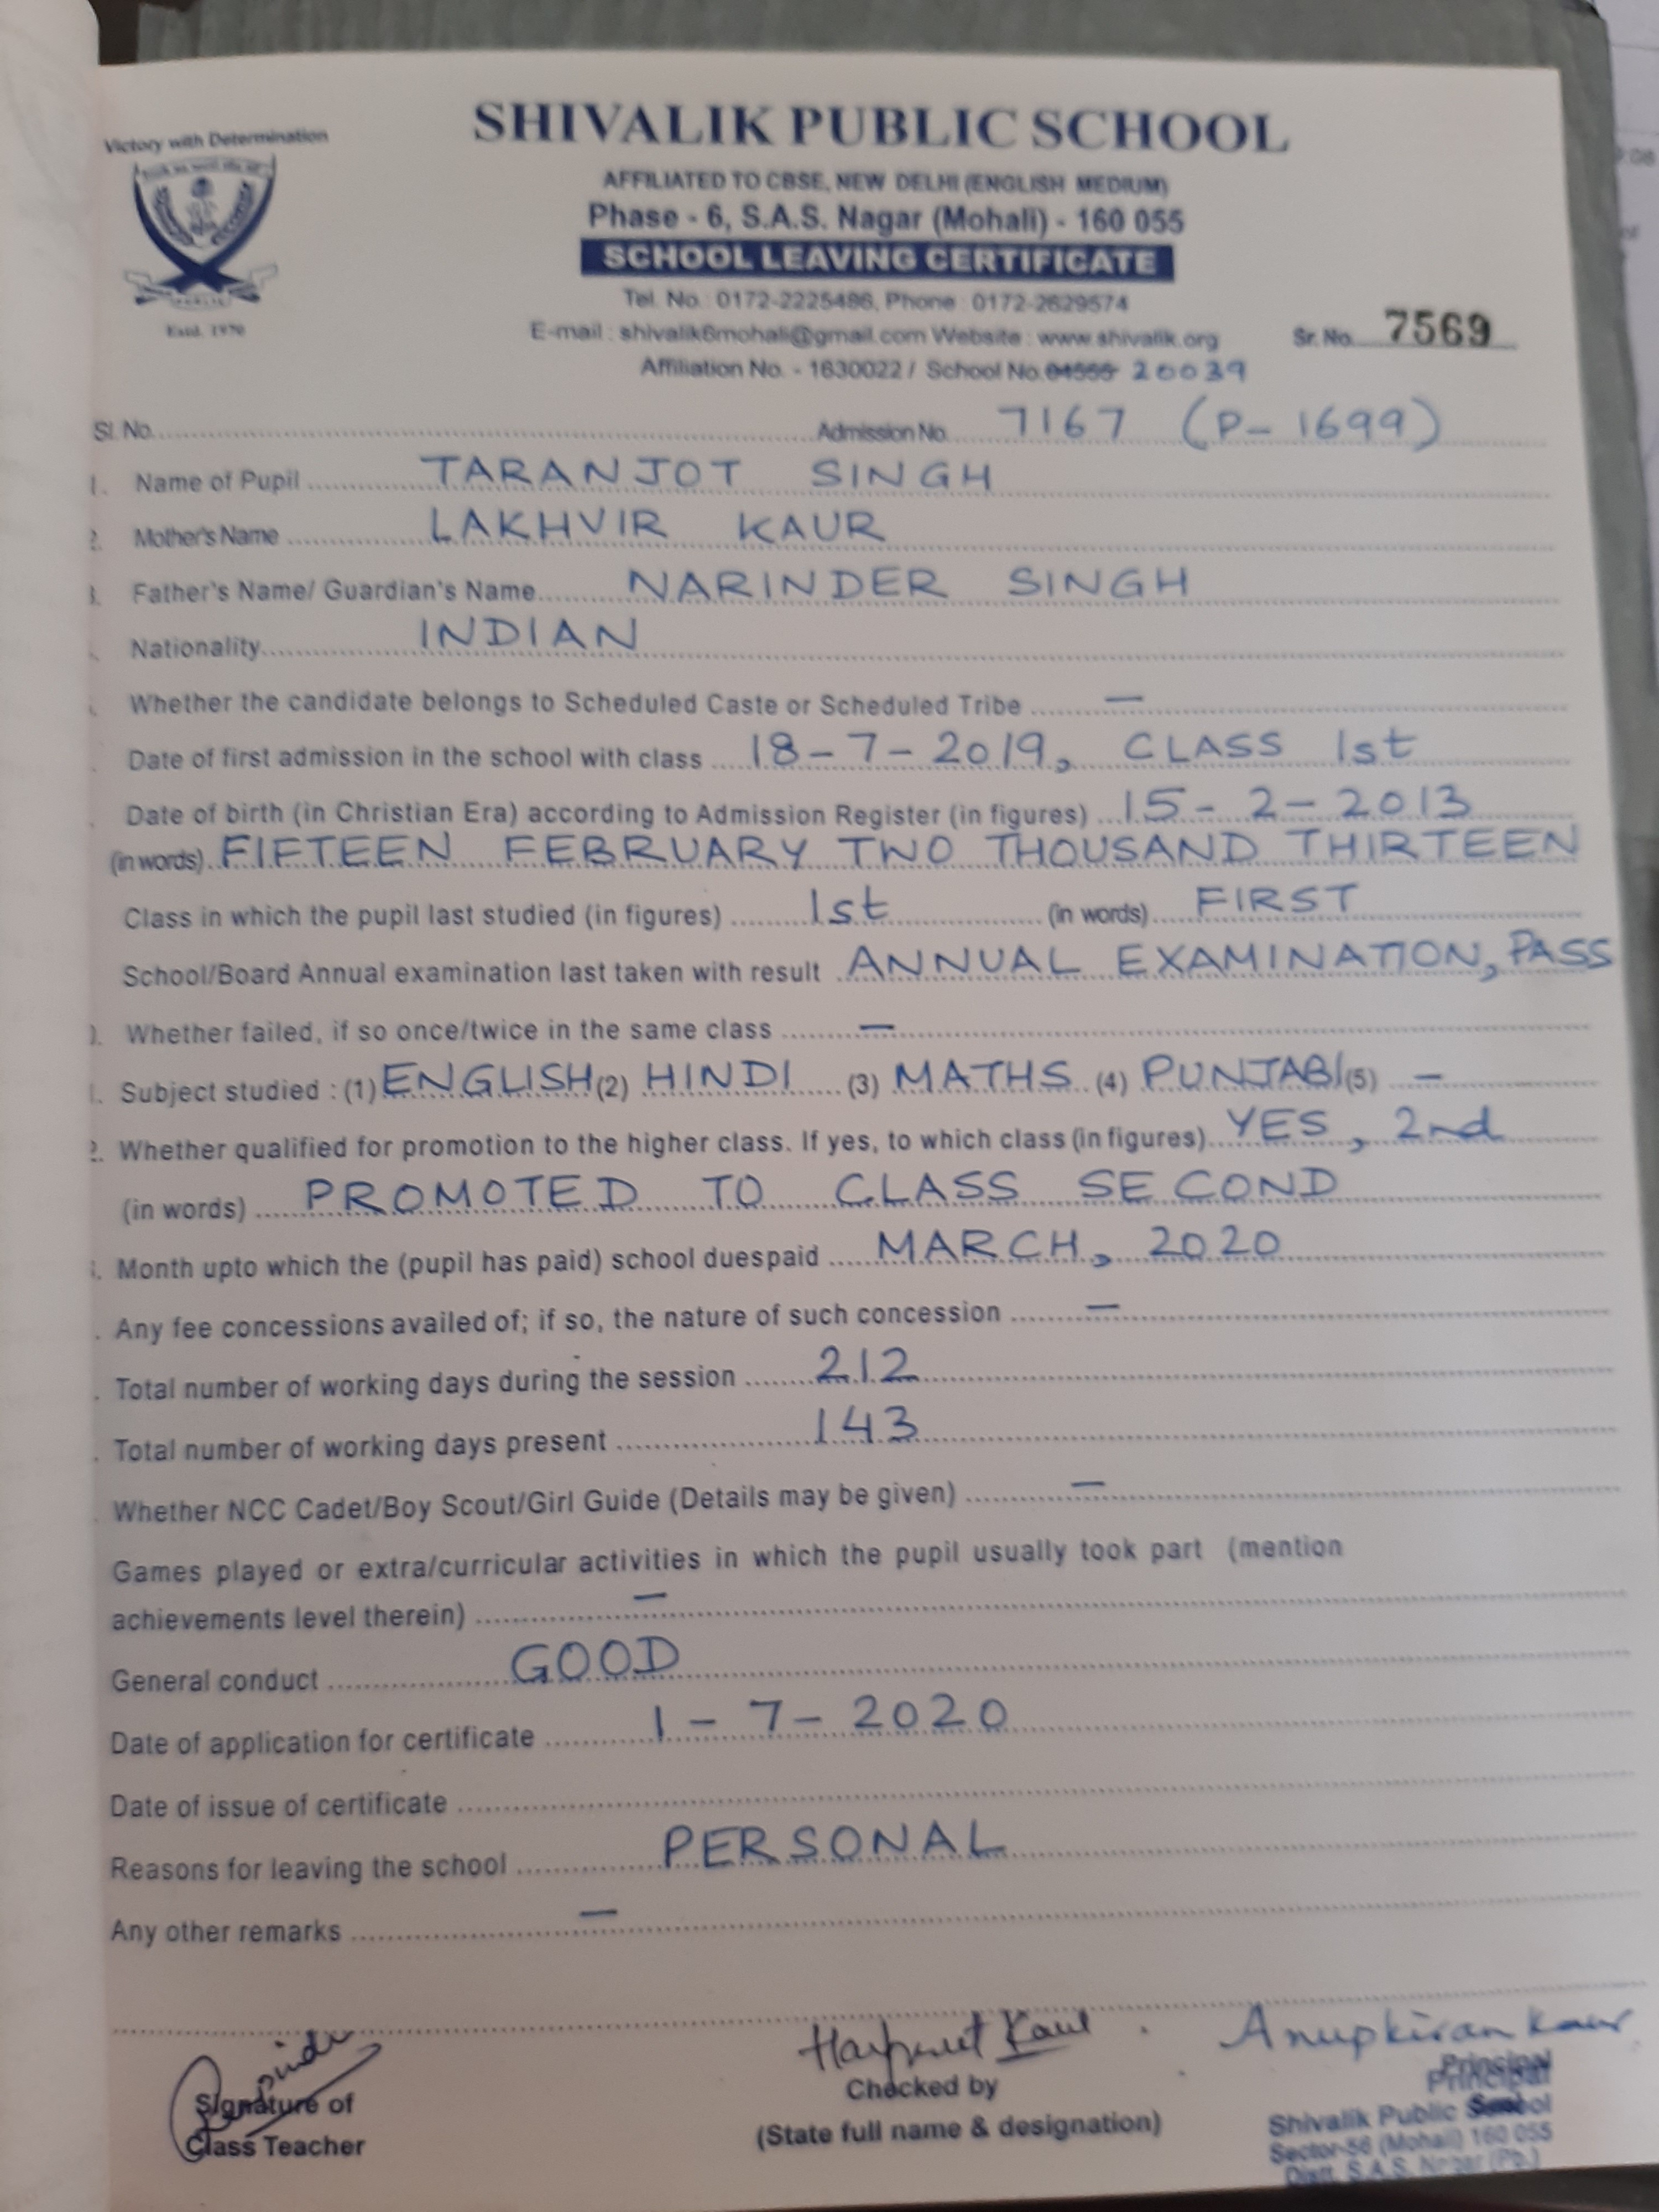 Victory with Determination
SHIVALIK PUBLIC SCHOOL
AFFILIATED TO CBSE, NEW DELHI (ENGLISH MEDIUM)
Phase - 6, S.A.S. Nagar (Mohali) - 160 055
SCHOOL LEAVING CERTIFICATE
Tel. No. : 0172-2225486, Phone : 0172-2629574
Estd. 1970
E-mail : shivalik6mohali@gmail.com Website : www.shivalik.org Sr. No. 7569
Affiliation No. - 1630022 / School No. 04555 20039
Sl. No. Admission No. 7167 (P-1699)
1. Name of Pupil TARANJOT SINGH
2. Mother's Name LAKHVIR KAUR
3. Father's Name/ Guardian's Name NARINDER SINGH
Nationality INDIAN
Whether the candidate belongs to Scheduled Caste or Scheduled Tribe —
Date of first admission in the school with class 18-7-2019, CLASS 1st
Date of birth (in Christian Era) according to Admission Register (in figures) 15-2-2013
(in words) FIFTEEN FEBRUARY TWO THOUSAND THIRTEEN
Class in which the pupil last studied (in figures) 1st (in words) FIRST
School/Board Annual examination last taken with result ANNUAL EXAMINATION, PASS
Whether failed, if so once/twice in the same class —
Subject studied : (1) ENGLISH (2) HINDI (3) MATHS (4) PUNJABI (5) —
Whether qualified for promotion to the higher class. If yes, to which class (in figures) YES, 2nd
(in words) PROMOTED TO CLASS SECOND
Month upto which the (pupil has paid) school duespaid MARCH, 2020
Any fee concessions availed of; if so, the nature of such concession —
Total number of working days during the session 212
Total number of working days present 143
Whether NCC Cadet/Boy Scout/Girl Guide (Details may be given) —
Games played or extra/curricular activities in which the pupil usually took part (mention
achievements level therein) —
General conduct GOOD
Date of application for certificate 1-7-2020
Date of issue of certificate
Reasons for leaving the school PERSONAL
Any other remarks —
Harpreet Kaur Anupkiran Kaur
Signature of Checked by Principal
Class Teacher (State full name & designation) Shivalik Public School
Sector-56 (Mohali) 160 055
Distt. S.A.S. Nagar (Pb.)